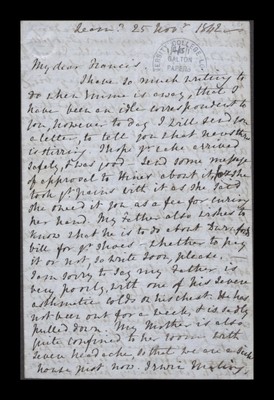 Leam.n 25 Nov.r 1842
GALTON
PAPERS
My dear Francis.
I have so much writing to
do when Emma is away, that I
have been an idle correspondent to
you, however to day I will send you
a letter, to tell you that
is stirring. I hope y.r cake arrived
safely, & was good - send some message
of approval to Hines about it, for she
took g.t pains with it as she said
she owed it you as a fee for curing
her hand. My Father also wishes to
know what he is to do about
bill for y.r shoes - whether to pay
it or not, so write soon, please. -
I am sorry to say my Father is
very poorly, with one of his severe
asthmatic colds on his chest. He has
not been out for a week, & is sadly
pulled down. My Mother is also
quite confined to her room with
severe headache, so that we are a sick
house just now.